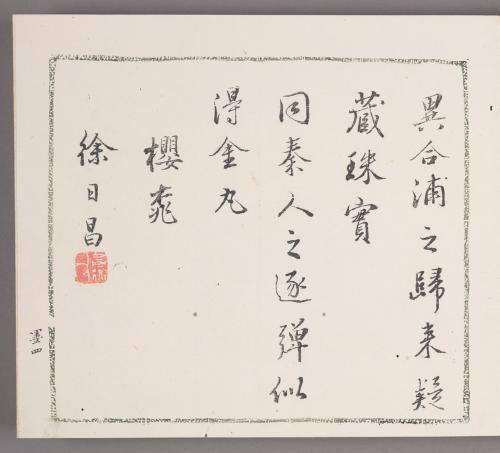 異合浦之歸来疑
藏珠實
同秦人之逐彈似
得金丸
櫻桃
徐日昌
墨四